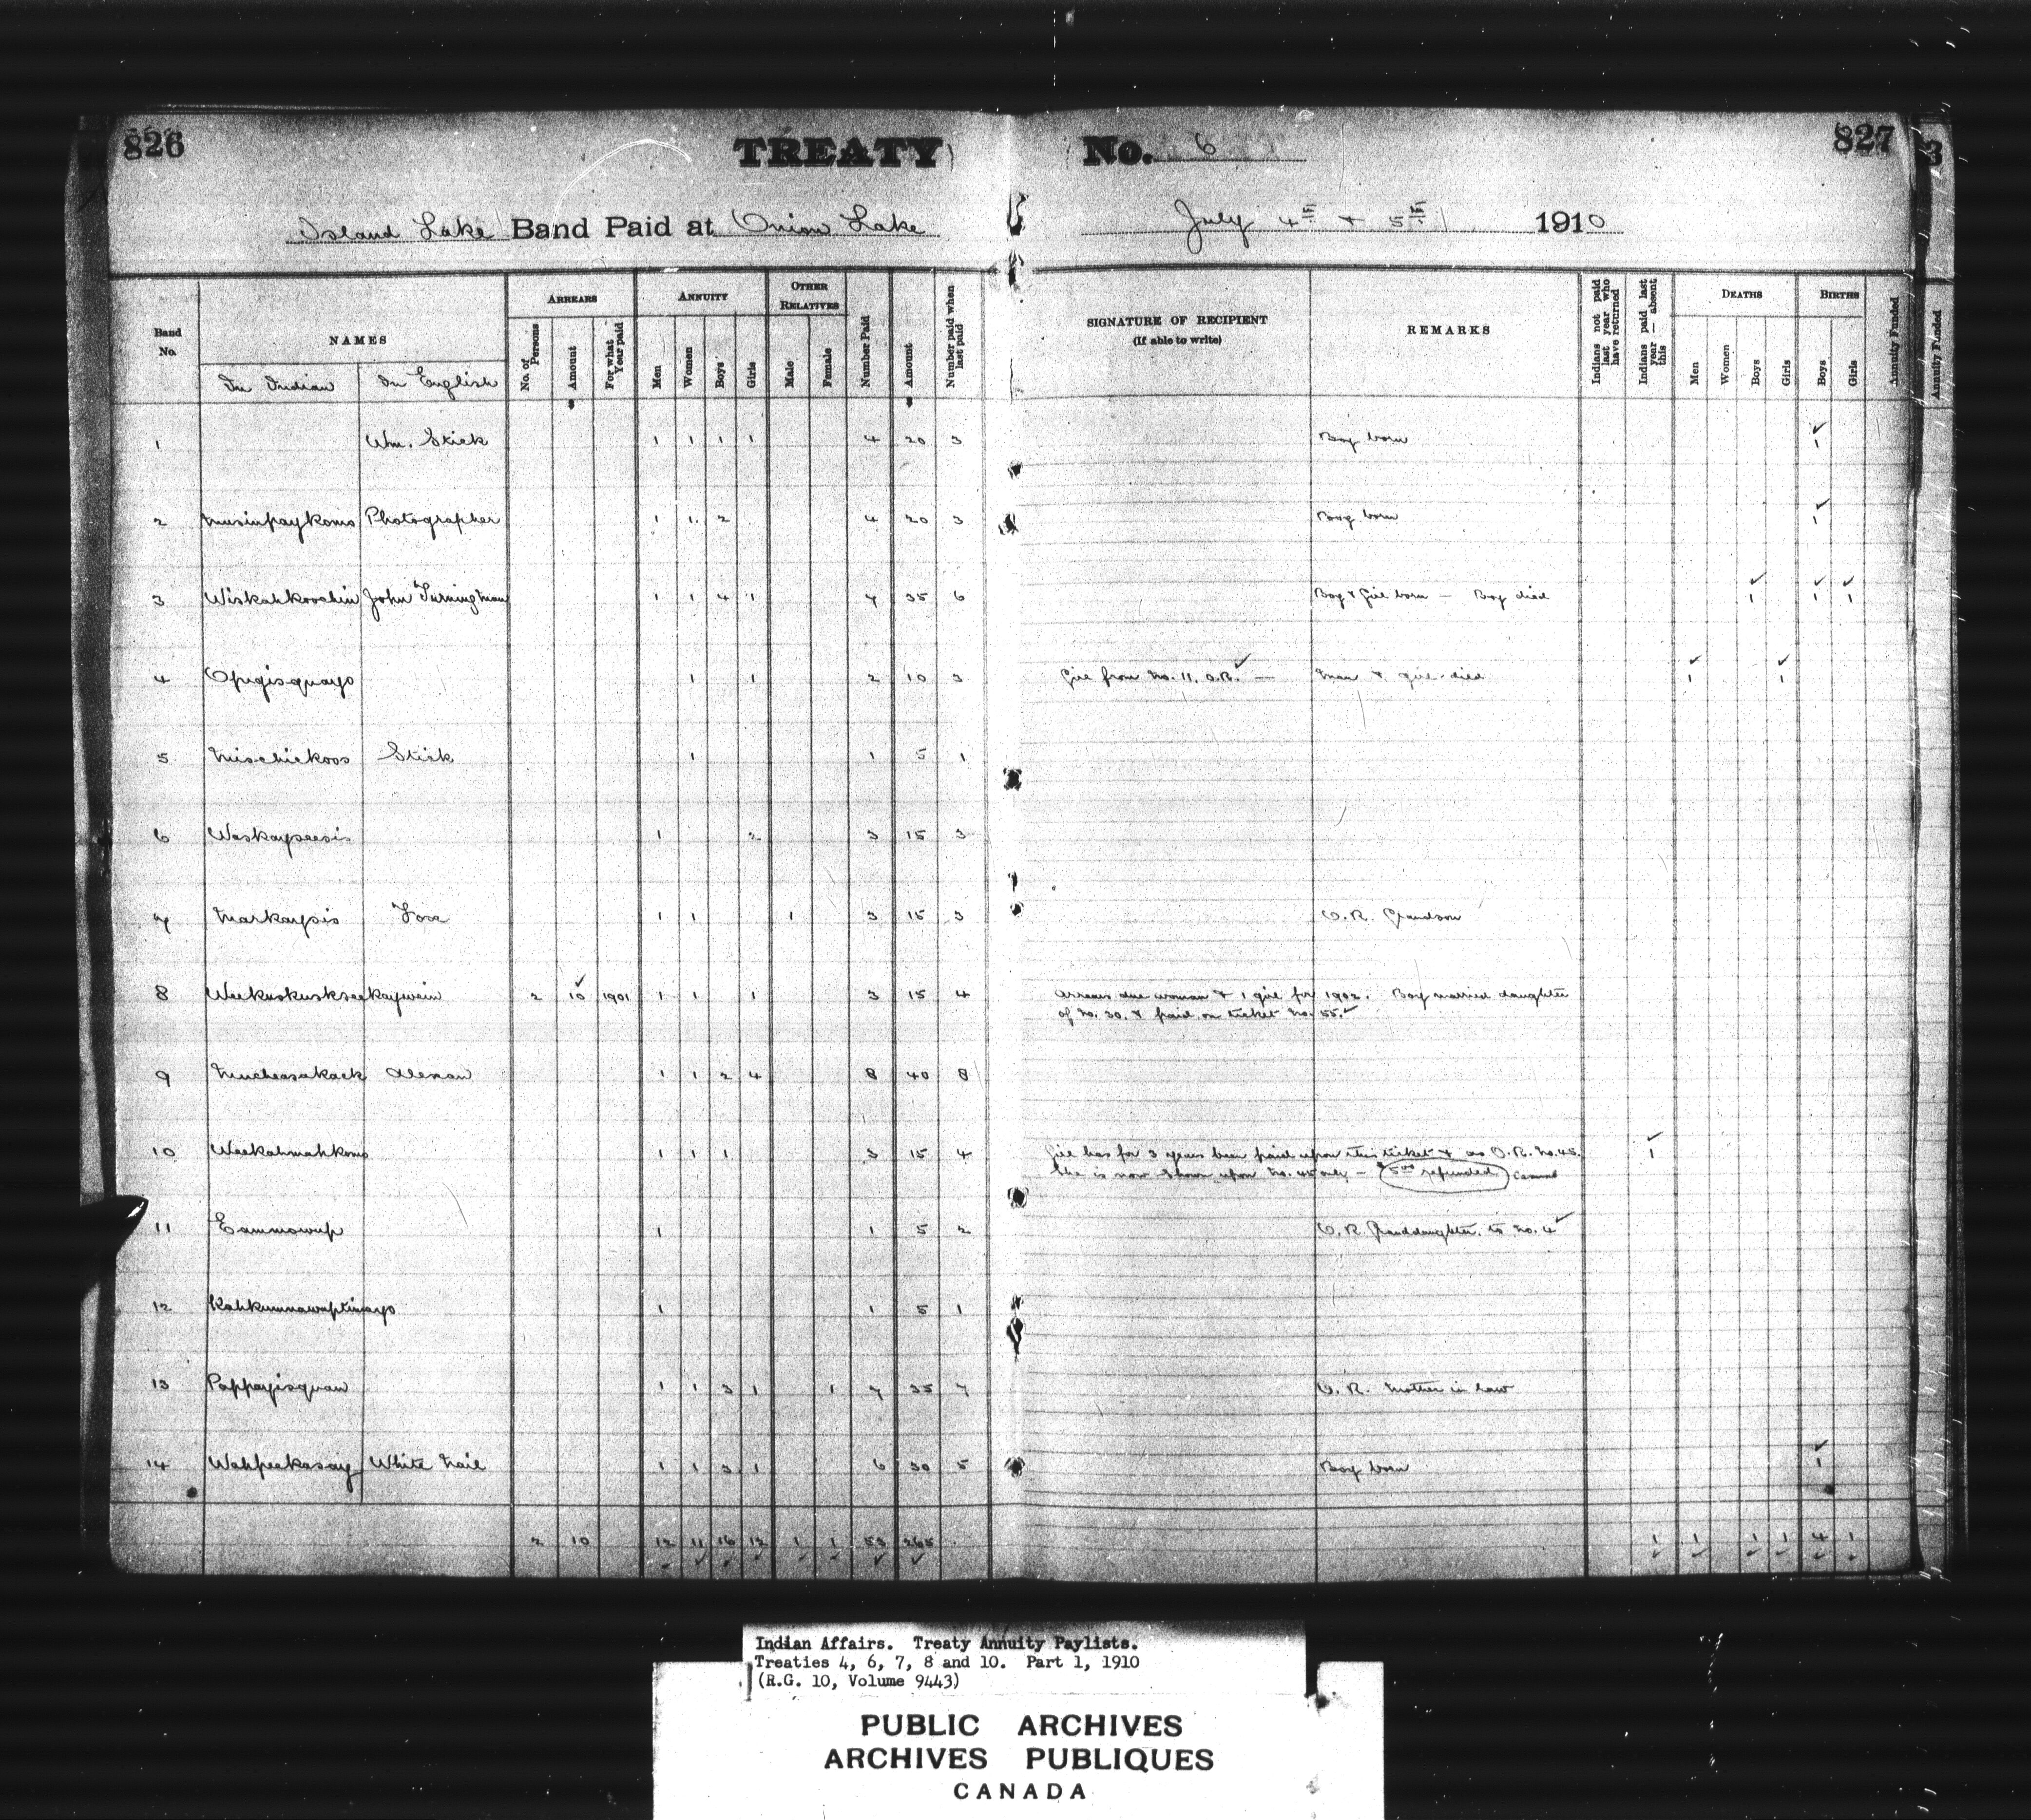 826 TREATY No. 6 827
Island Lake Band Paid at Onion Lake July 4th & 5th 1910
Band No. NAMES ARREARS ANNUITY OTHER RELATIVES Number Paid Amount Number paid when last paid SIGNATURE OF RECIPIENT (If able to write) REMARKS Indians not paid last year who have returned Indians paid last year — absent this DEATHS BIRTHS Annuity Funded Annuity Funded
In Indian In English No. of Persons Amount For what Year paid Men Women Boys Girls Male Female Men Women Boys Girls Boys Girls
1 Wm. Stick 1 1 1 1 4 20 3 Boy born 1
2 Musinpaykomo Photographer 1 1 2 4 20 3 Boy born 1
3 Wiskahkoochin John Turning Man 1 1 4 1 7 35 6 Boy & Girl born — Boy died 1 1 1
4 Opigisquayo 1 1 2 10 3 Girl from No. 11, O.R. — Man & girl died 1 1
5 Mischickoos Stick 1 1 5 1
6 Waskaypeesis 1 2 3 15 3
7 Markaypis Fox 1 1 1 3 15 3 O.R. Grandson
8 Weekuskuskseekaywein 2 10 1901 1 1 1 3 15 4 Arrears due woman & 1 girl for 1902. Boy married daughter
of No. 30, & paid on ticket No. 55.
9 Mucheasakack 1 1 2 4 8 40 8
10 Weekahmahkomo 1 1 1 3 15 4 Girl has for 3 years been paid upon this ticket & as O.R. No. 45. 1
She is now shown upon No. 45 only — $5.00 refunded
11 Eammowup 1 1 5 2 O.R. Granddaughter to No. 4
12 Kahkumnawuptinayo 1 1 5 1
13 Pappayisquan 1 1 3 1 1 7 35 7 O.R. Mother in law
14 Wahpeekasay White Nail 1 1 3 1 6 30 5 Boy born 1
2 10 12 11 16 12 1 1 53 265 1 1 1 1 4 1
Indian Affairs. Treaty Annuity Paylists.
Treaties 4, 6, 7, 8 and 10. Part 1, 1910
(R.G. 10, Volume 9443)
PUBLIC ARCHIVES
ARCHIVES PUBLIQUES
CANADA